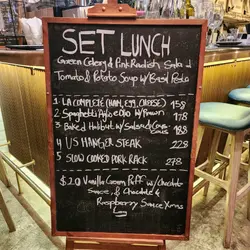 SET LUNCH
Green Celery & Pink Radish Salad
Tomato & Potato Soup w/ Basil Pesto
1. LA COMPLETE (HAM, EGG, CHEESE) 158
2. Spaghetti Aglio e Olio w/ Prawn 178
3. Baked Halibut w/ Salsa & 188
4 US HANGER STEAK 228
5 SLOW COOKED PORK RACK 278
$20 Vanilla Cream Puff w/ Chocolate
Sauce, & Chocolate &
Raspberry Sauce